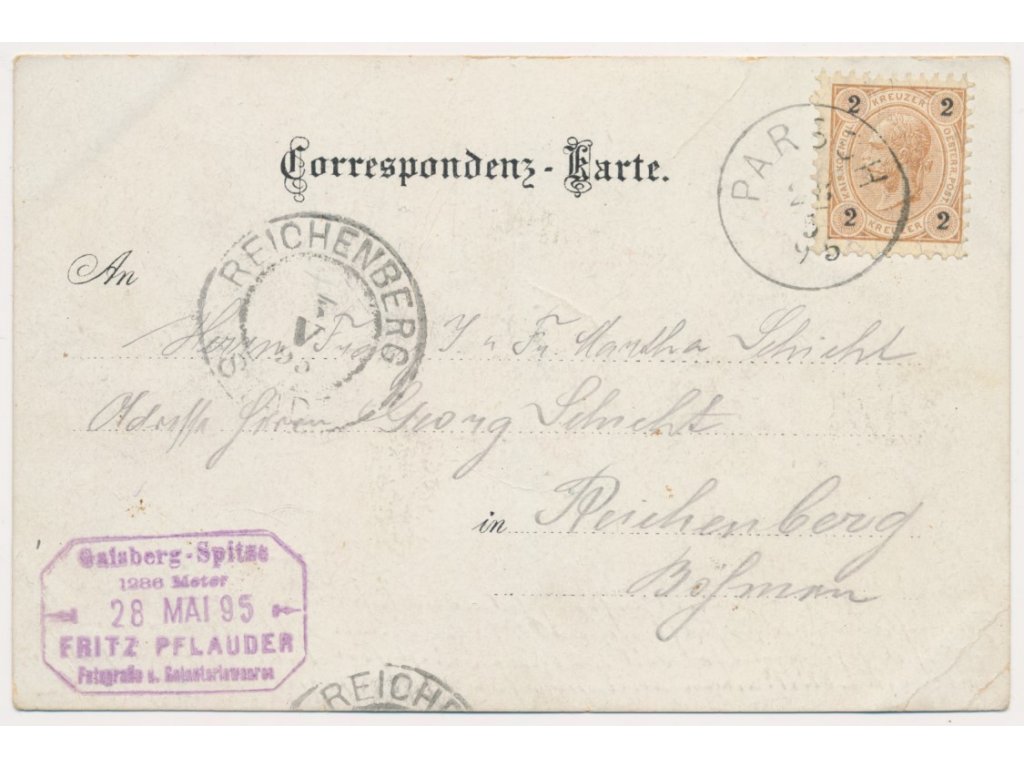 Correspondenz-Karte.
2 KREUZER 2
OESTERR. POST.
2 KREUZER 2
PARSCH
95
REICHENBERG
V
95
An
Herrn J u Fr. Martha Schicht
Adresse Herrn Georg Schicht
in Reichenberg
Böhmen
Gaisberg-Spitze
1286 Meter
28 MAI 95
FRITZ PFLAUDER
Fotografie u. Galanteriewaaren
REICHE